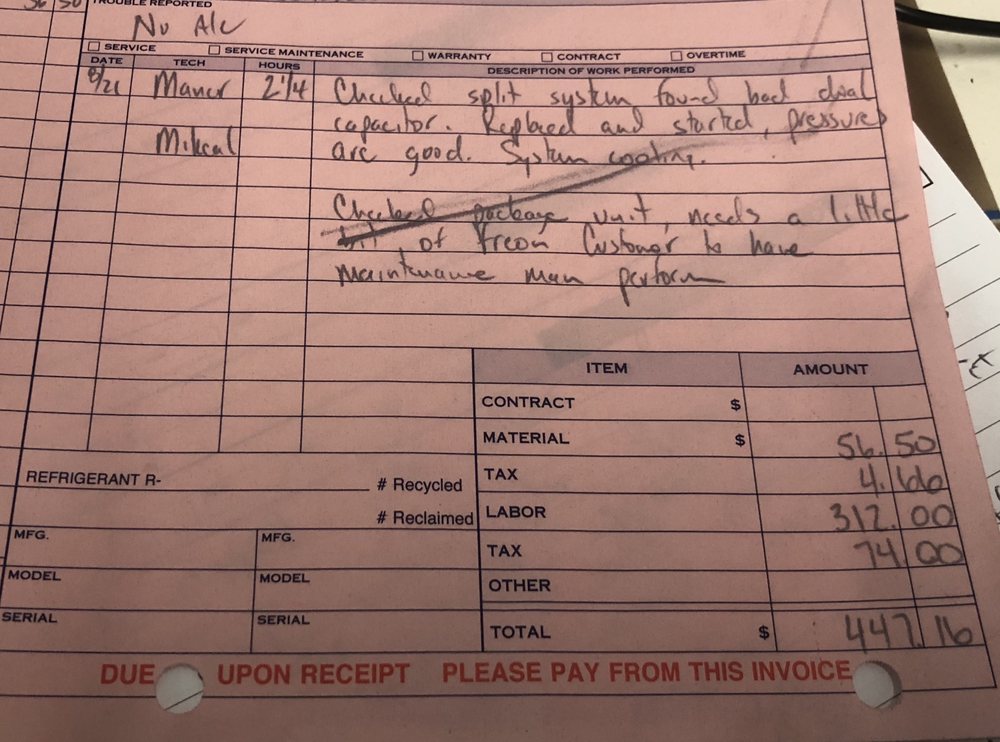 56 50
TROUBLE REPORTED
No A/c
SERVICE SERVICE MAINTENANCE WARRANTY CONTRACT OVERTIME
DATE TECH HOURS DESCRIPTION OF WORK PERFORMED
8/21 2 1/4 Checked split system found bad dual
capacitor. Replaced and started, pressures
are good. System cooling.
Checked package unit, needs a little
bit of freon Customer to have
maintenance man perform
ITEM AMOUNT
CONTRACT $
MATERIAL $ 56.50
TAX 4.66
REFRIGERANT R- # Recycled
LABOR 312.00
# Reclaimed
TAX 74.00
MFG. MFG.
OTHER
MODEL MODEL
SERIAL SERIAL
TOTAL $ 447.16
DUE UPON RECEIPT PLEASE PAY FROM THIS INVOICE